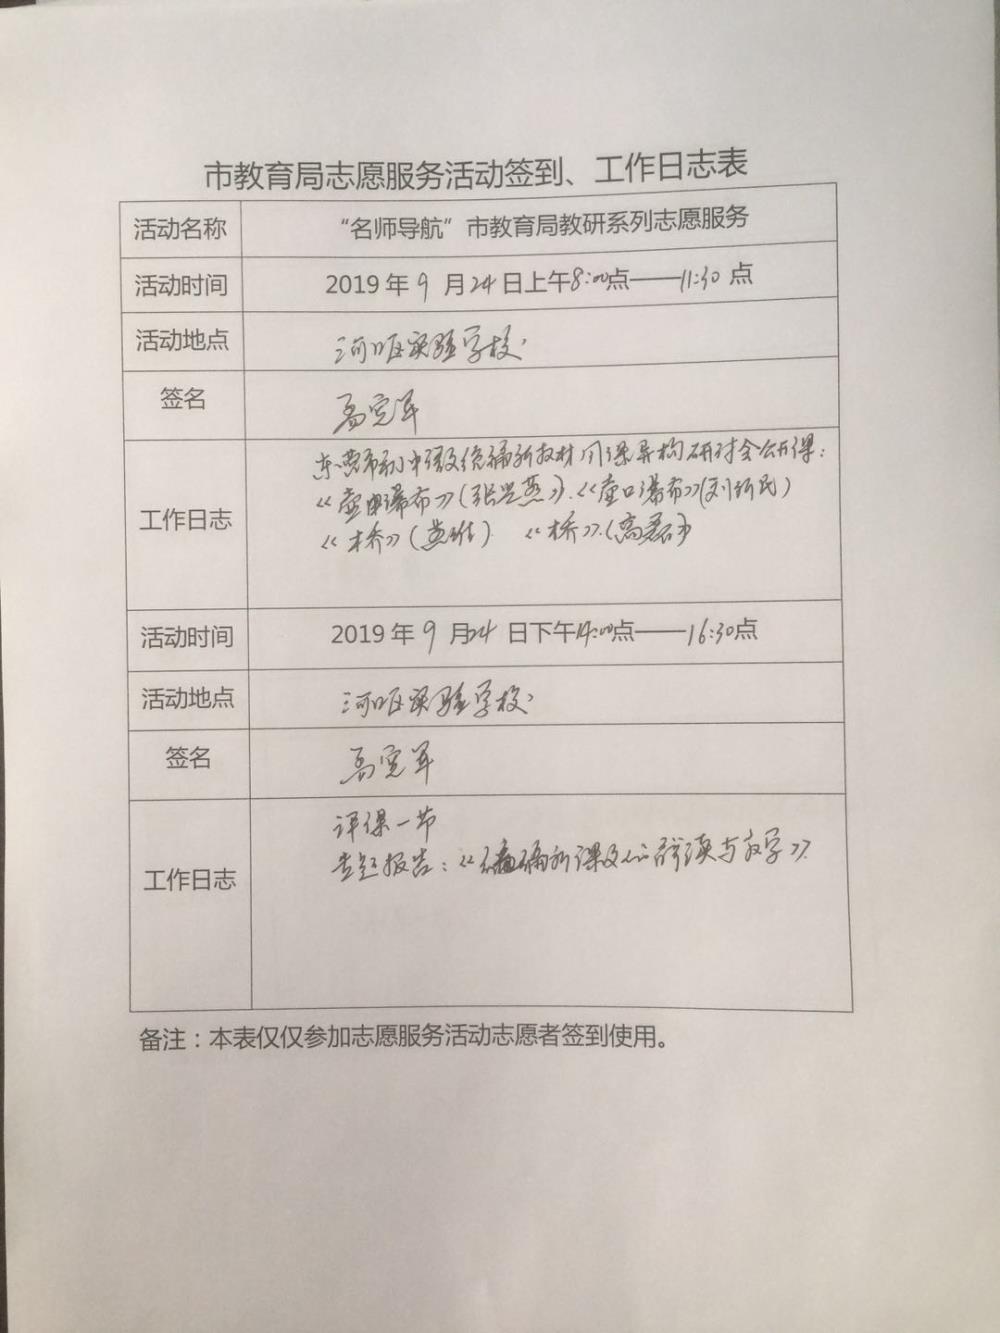 市教育局志愿服务活动签到、工作日志表
活动名称 “名师导航”市教育局教研系列志愿服务
活动时间 2019年9月24日上午8:00点——11:30点
活动地点 河口区实验学校
签名 高宪军
工作日志 东营市初中级统编新教材同课异构研讨会公开课：
《壶口瀑布》(张兴燕)、《壶口瀑布》(刘新民)
《桥》(燕) 《桥》(高磊)
活动时间 2019年9月24日下午14:00点——16:30点
活动地点 河口区实验学校
签名 高宪军
工作日志 评课一节
专题报告：《统编新课文的解读与教学》
备注：本表仅仅参加志愿服务活动志愿者签到使用。